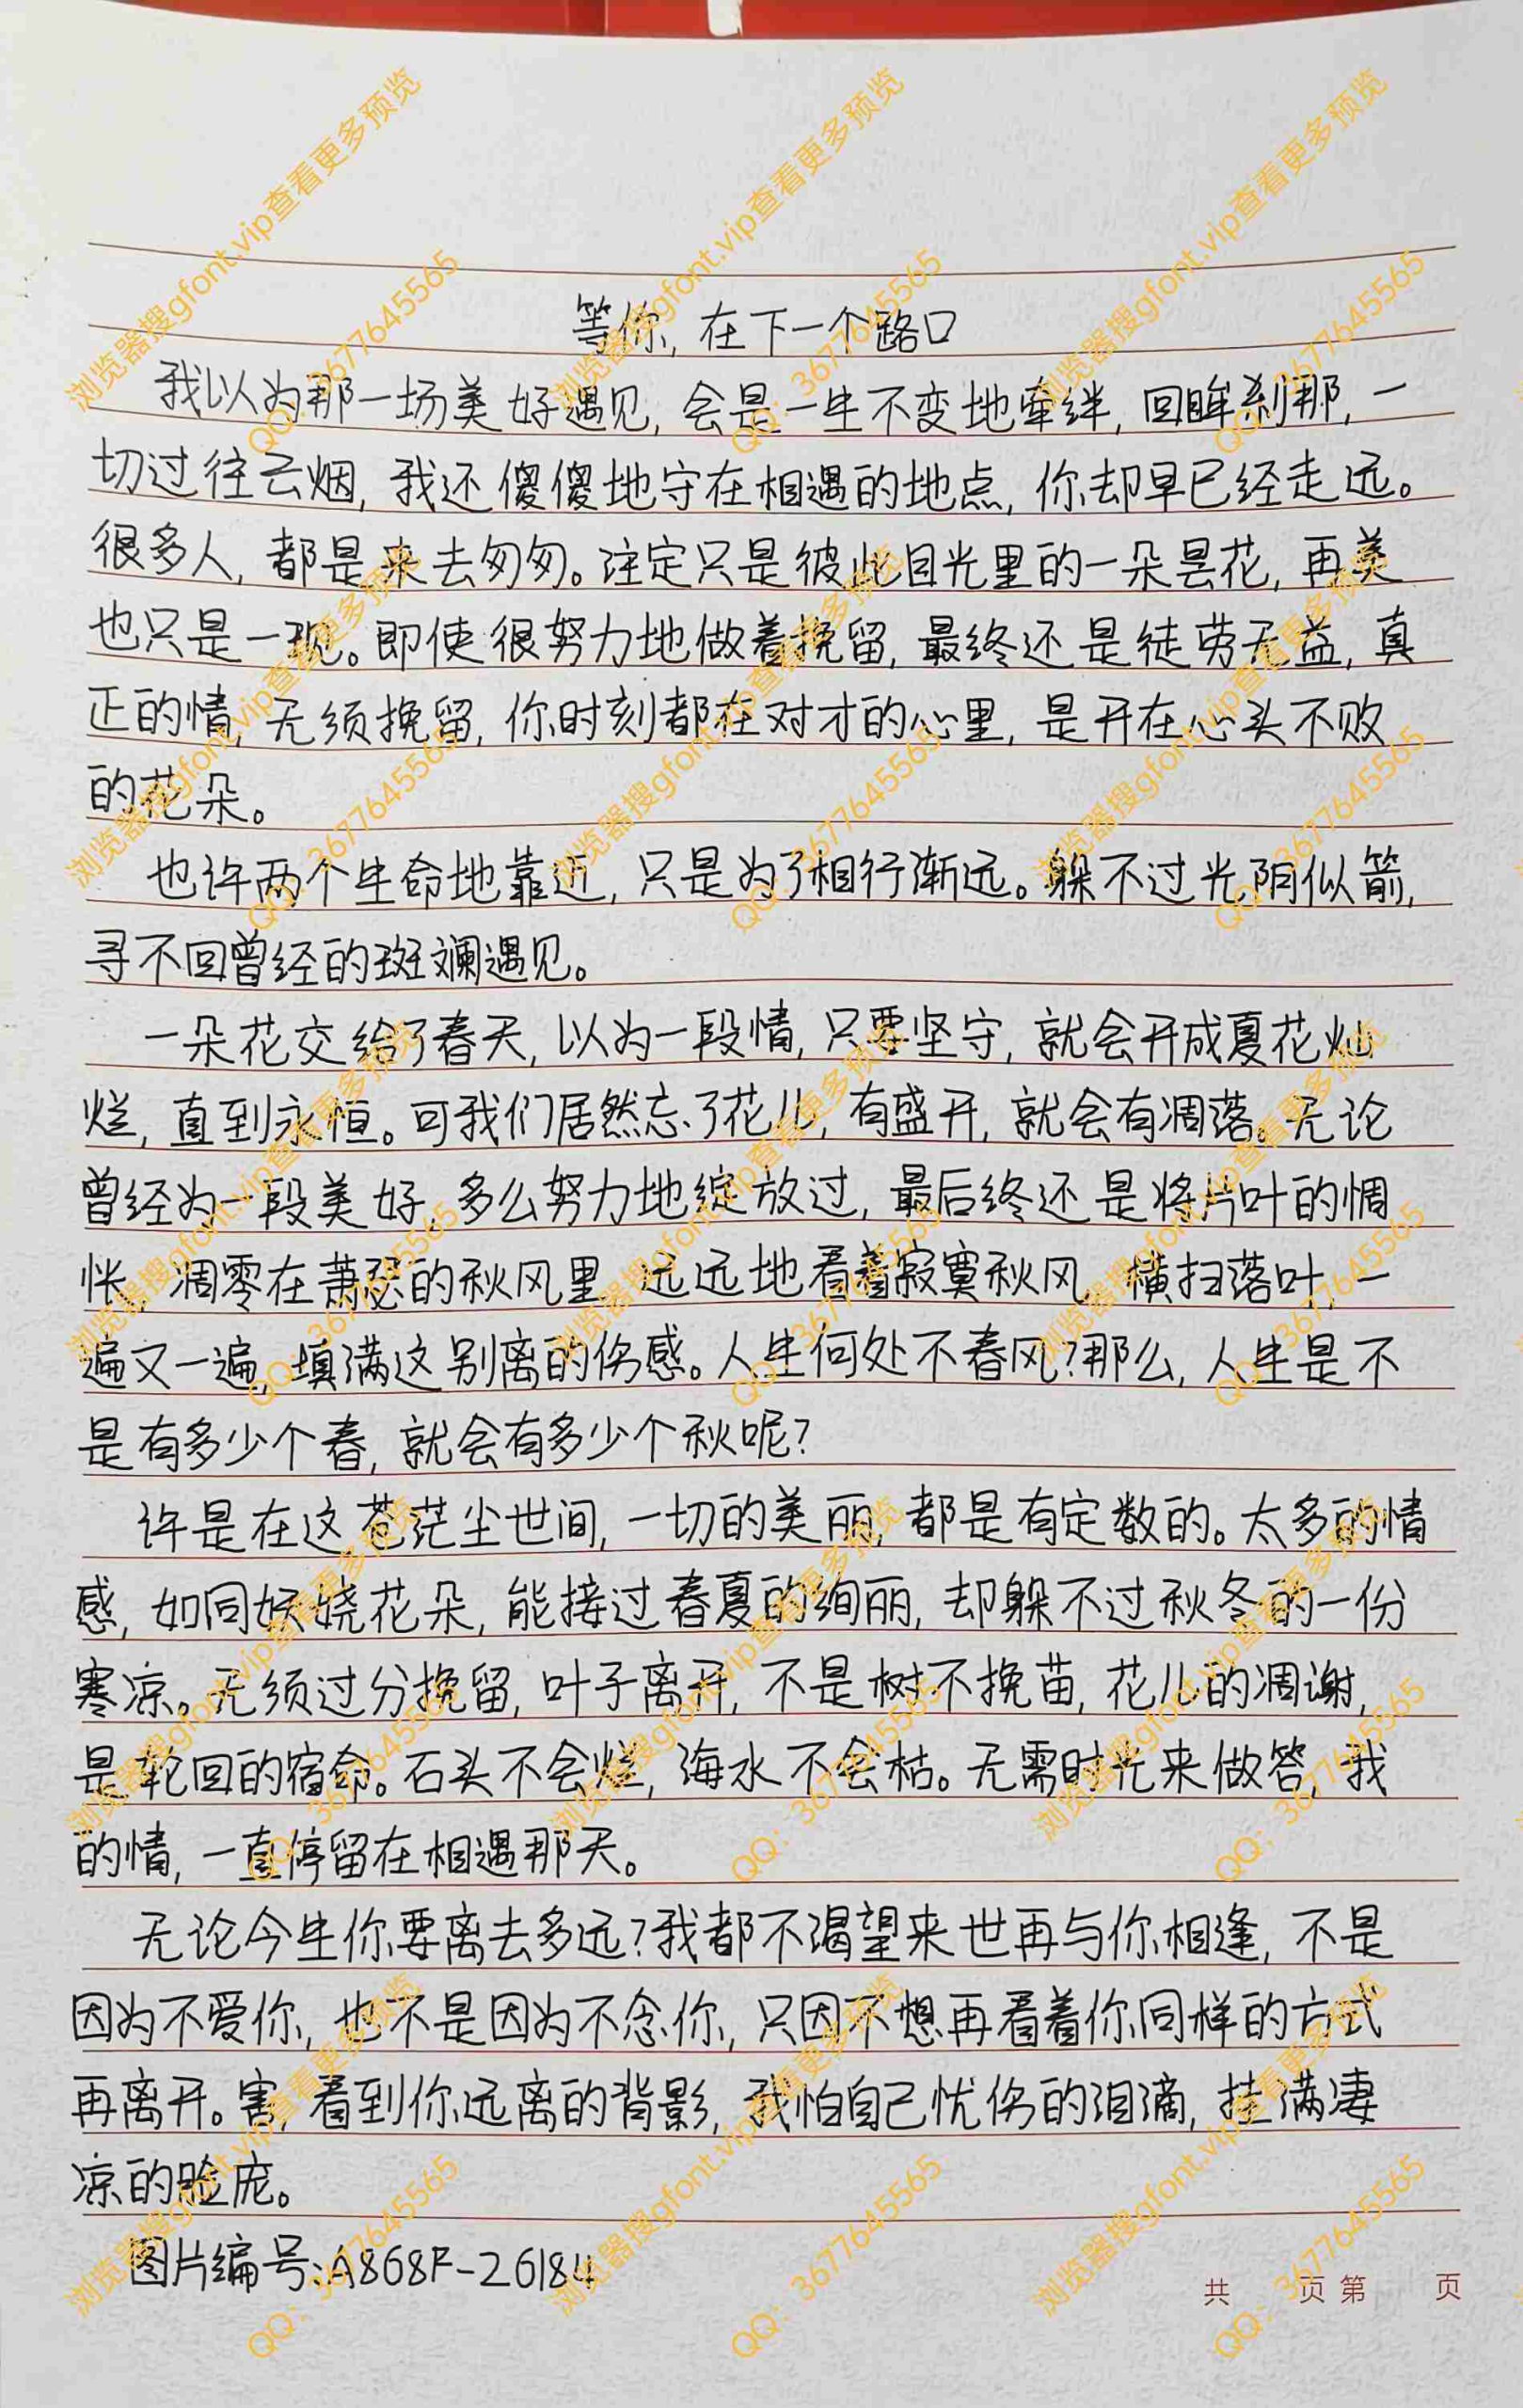 等你,在下一个路口
我以为那一场美好遇见,会是一生不变地牵绊,回眸刹那,一
切过往云烟,我还傻傻地守在相遇的地点,你却早已经走远。
很多人,都是来去匆匆。注定只是彼此目光里的一朵昙花,再美
也只是一现。即使很努力地做着挽留,最终还是徒劳无益,真
正的情,无须挽留,你时刻都在对才的心里,是开在心头不败
的花朵。
也许两个生命地靠近,只是为了相行渐远。躲不过光阴似箭,
寻不回曾经的斑斓遇见。
一朵花交给了春天,以为一段情,只要坚守,就会开成夏花灿
烂,直到永恒。可我们居然忘了花儿,有盛开,就会有凋落。无论
曾经为一段美好,多么努力地绽放过,最后终还是将片叶的惆
怅,凋零在萧瑟的秋风里,远远地看着寂寞秋风,横扫落叶,一
遍又一遍,填满这别离的伤感。人生何处不春风?那么,人生是不
是有多少个春,就会有多少个秋呢?
许是在这苍茫尘世间,一切的美丽,都是有定数的。太多的情
感,如同妖娆花朵,能接过春夏的绚丽,却躲不过秋冬的一份
寒凉。无须过分挽留,叶子离开,不是树不挽苗,花儿的凋谢,
是轮回的宿命。石头不会烂,海水不会枯。无需时光来做答,我
的情,一直停留在相遇那天。
无论今生你要离去多远?我都不渴望来世再与你相逢,不是
因为不爱你,也不是因为不念你,只因不想再看着你同样的方式
再离开。害,看到你远离的背影,我怕自己忧伤的泪滴,挂满凄
凉的脸庞。
图片编号:A868F-26184
共 页 第 页
浏览器搜gfont.vip查看更多预览
QQ:3677645565